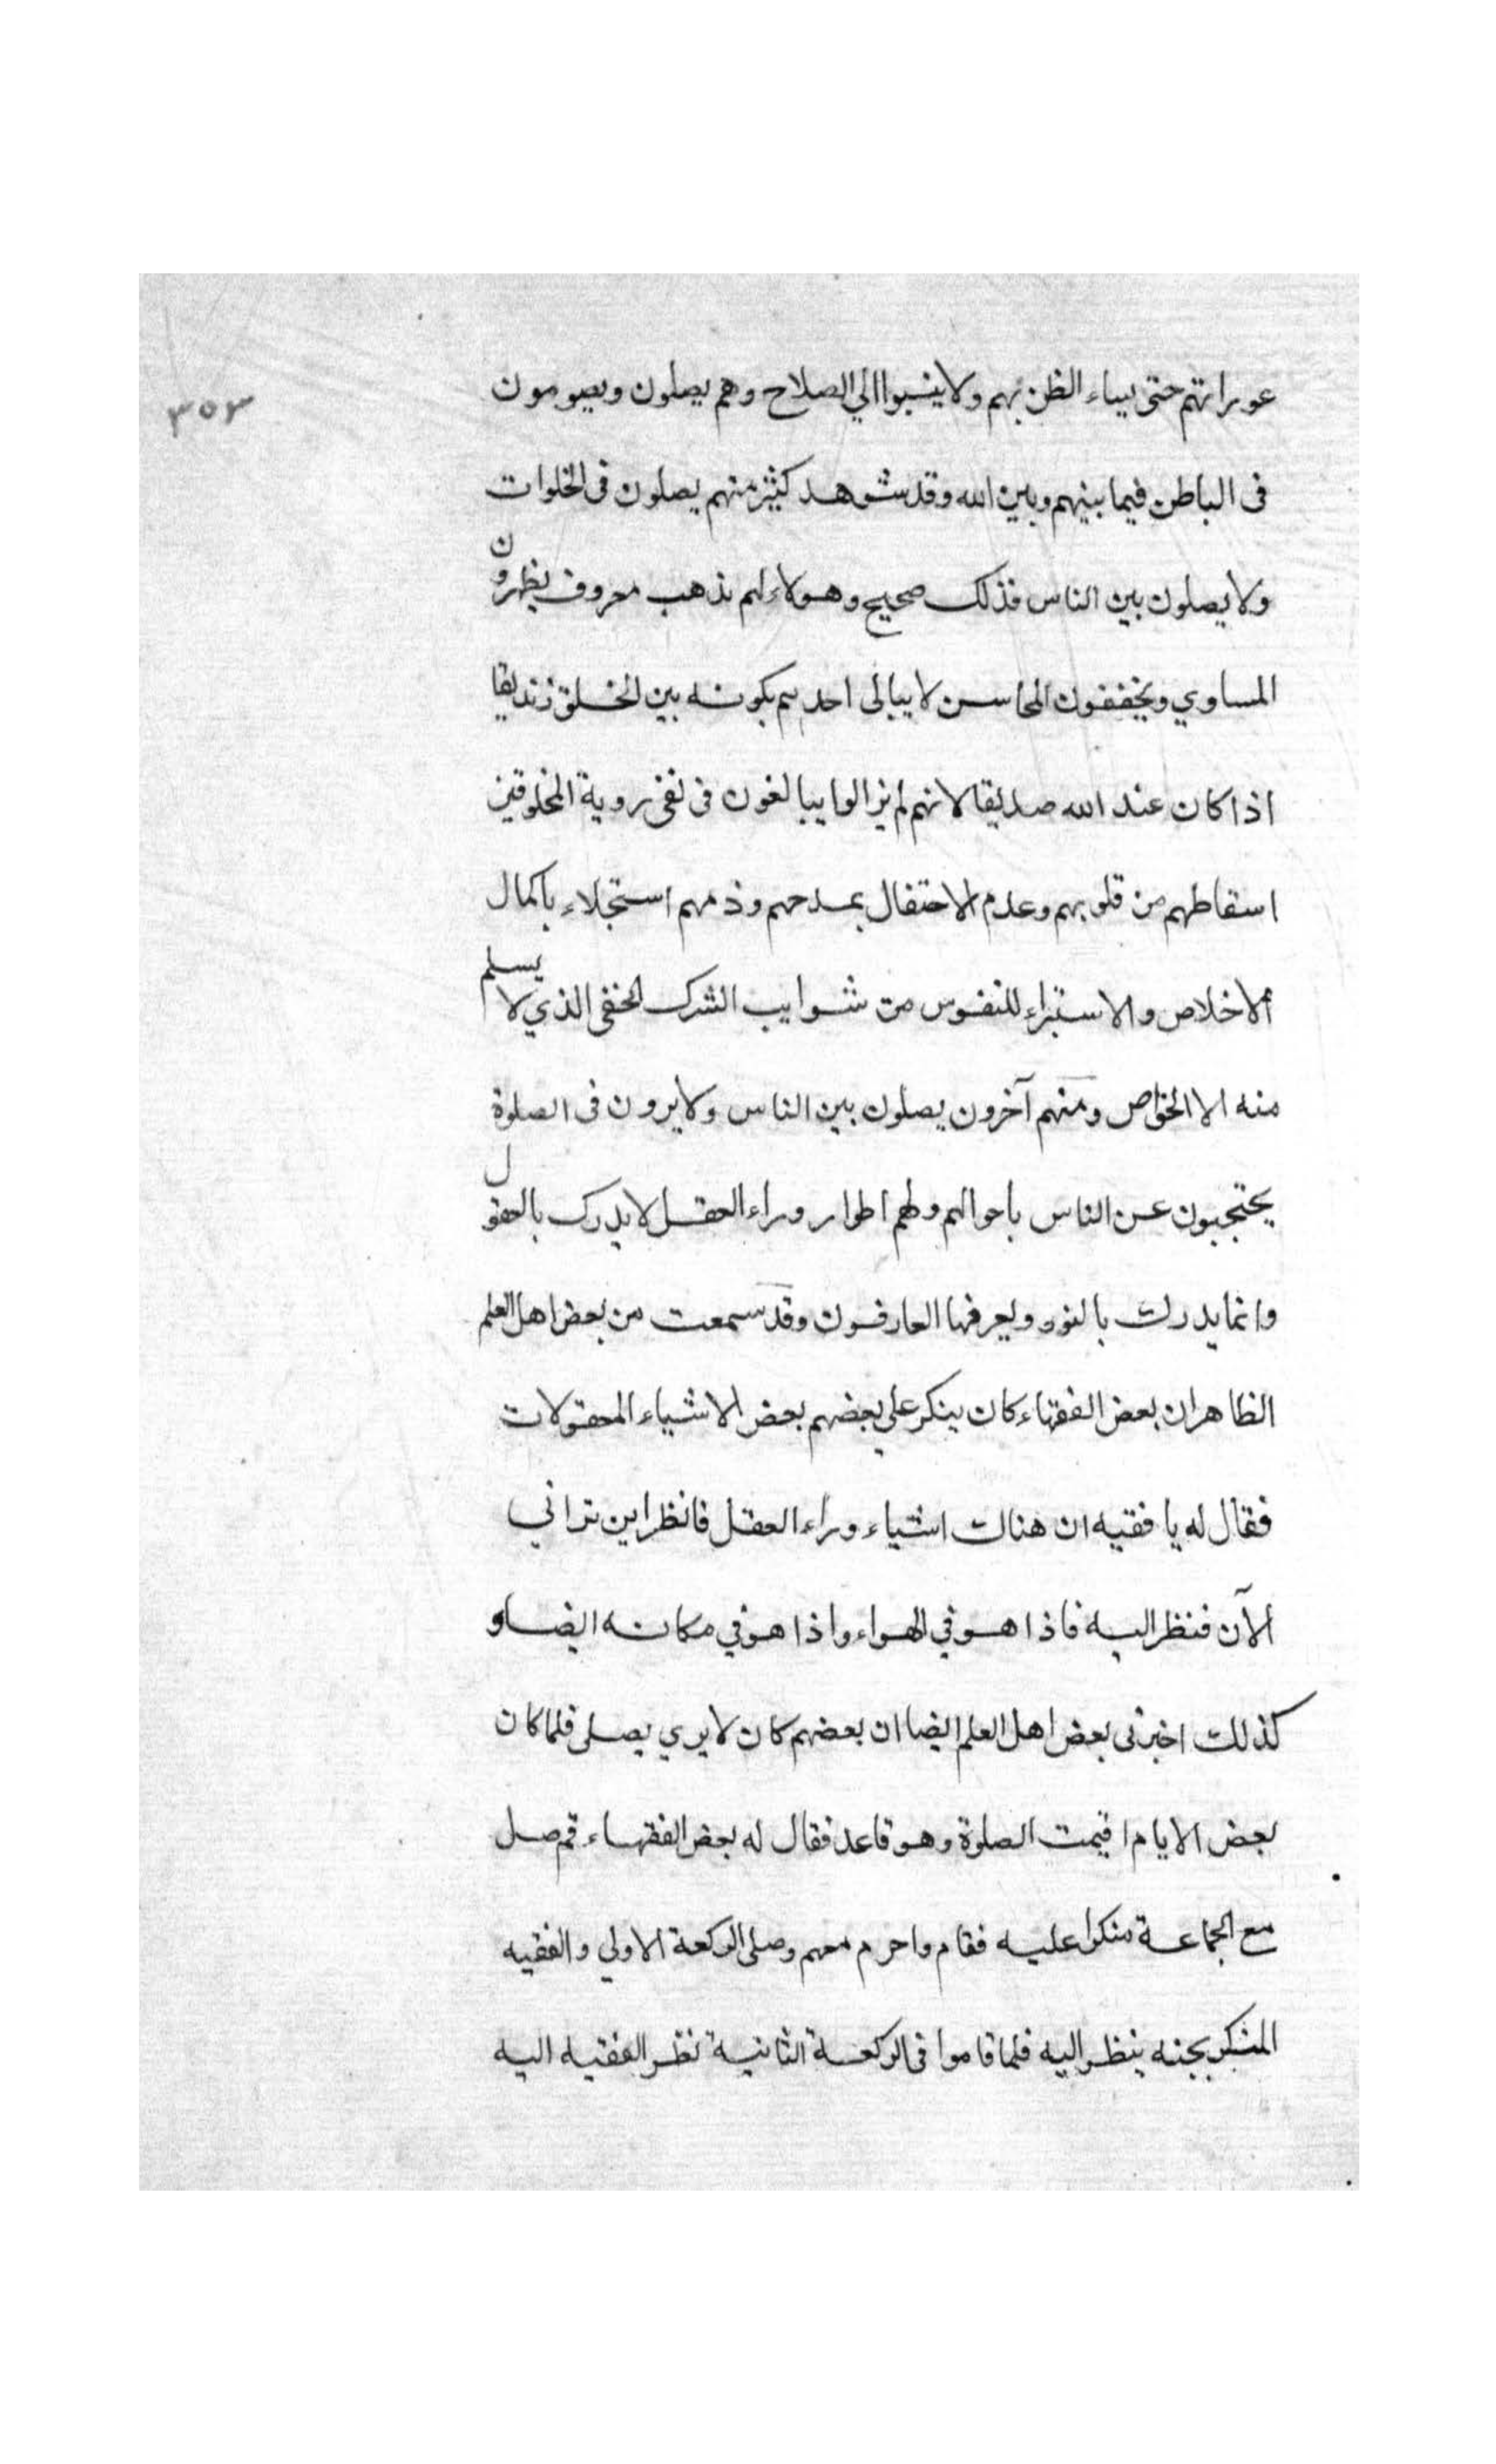 ٣٥٣
عوراتهم حتى يساء الظن بهم ولا ينسبوا الي الصلاح وهم يصلون ويصومون
فى الباطن فيما بينهم وبين الله وقد شوهد كثير منهم يصلون فى الخلوات
ولا يصلون بين الناس فذلك صحيح وهولاء لهم مذهب معروف يظهرون
المساوي ويخففون المحاسن لا يبالى احدهم بكونه بين الخلق زنديقا
اذا كان عند الله صديقا لانهم لم يزالوا يبالغون فى نفى روية المخلوقين
اسقاطهم من قلوبهم وعدم الاحتفال بمدحهم وذمهم استجلاء باكمال
الاخلاص والاستبراء للنفوس من شوايب الشرك الخفى الذي لا يسلم
منه الا الخواص ومنهم آخرون يصلون بين الناس ولا يرون فى الصلوة
يحتجبون عن الناس باحوالهم ولهم اطوار وراء العقل لا يدرك بالعقول
وانما يدرك بالنور ويعرفها العارفون وقد سمعت من بعض اهل العلم
الظاهر ان بعض الفقهاء كان ينكر علي بعضهم بعض الاشياء المعقولات
فقال له يا فقيه ان هناك اشياء وراء العقل فانظر اين تراني
الآن فنظر اليه فاذا هو في الهواء واذا هو في مكانه ايضا و
كذلك اخبرنى بعض اهل العلم ايضا ان بعضهم كان لا يري يصلى فلما كان
بعض الايام اقيمت الصلوة وهو قاعد فقال له بعض الفقهاء قم صل
مع الجماعة منكرا عليه فقام واحرم معهم وصلى الركعة الاولي والفقيه
المنكر بجنبه ينظر اليه فلما قاموا فى الركعة الثانية نظر الفقيه اليه